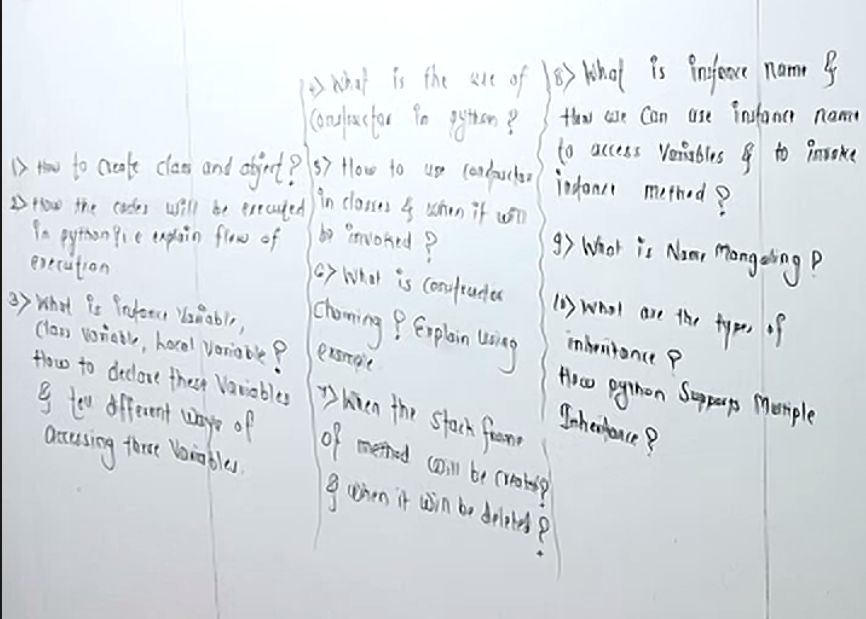 1) How to create class and object?
2) How the codes will be executed
in python? i.e explain flow of
execution
3) What is instance variable,
Class variable, Local variable?
How to declare these variables
& tell different ways of
accessing these variables.
4) What is the use of
constructor in python?
5) How to use constructor
in classes & when it will
be invoked?
6) What is constructor
chaining? Explain using
example
7) When the stack frame
of method will be created?
& when it will be deleted?
8) What is instance name &
How we can use instance name
to access variables & to invoke
instance method?
9) What is Name Mangaling?
10) What are the types of
inheritance?
How python supports Multiple
Inheritance?